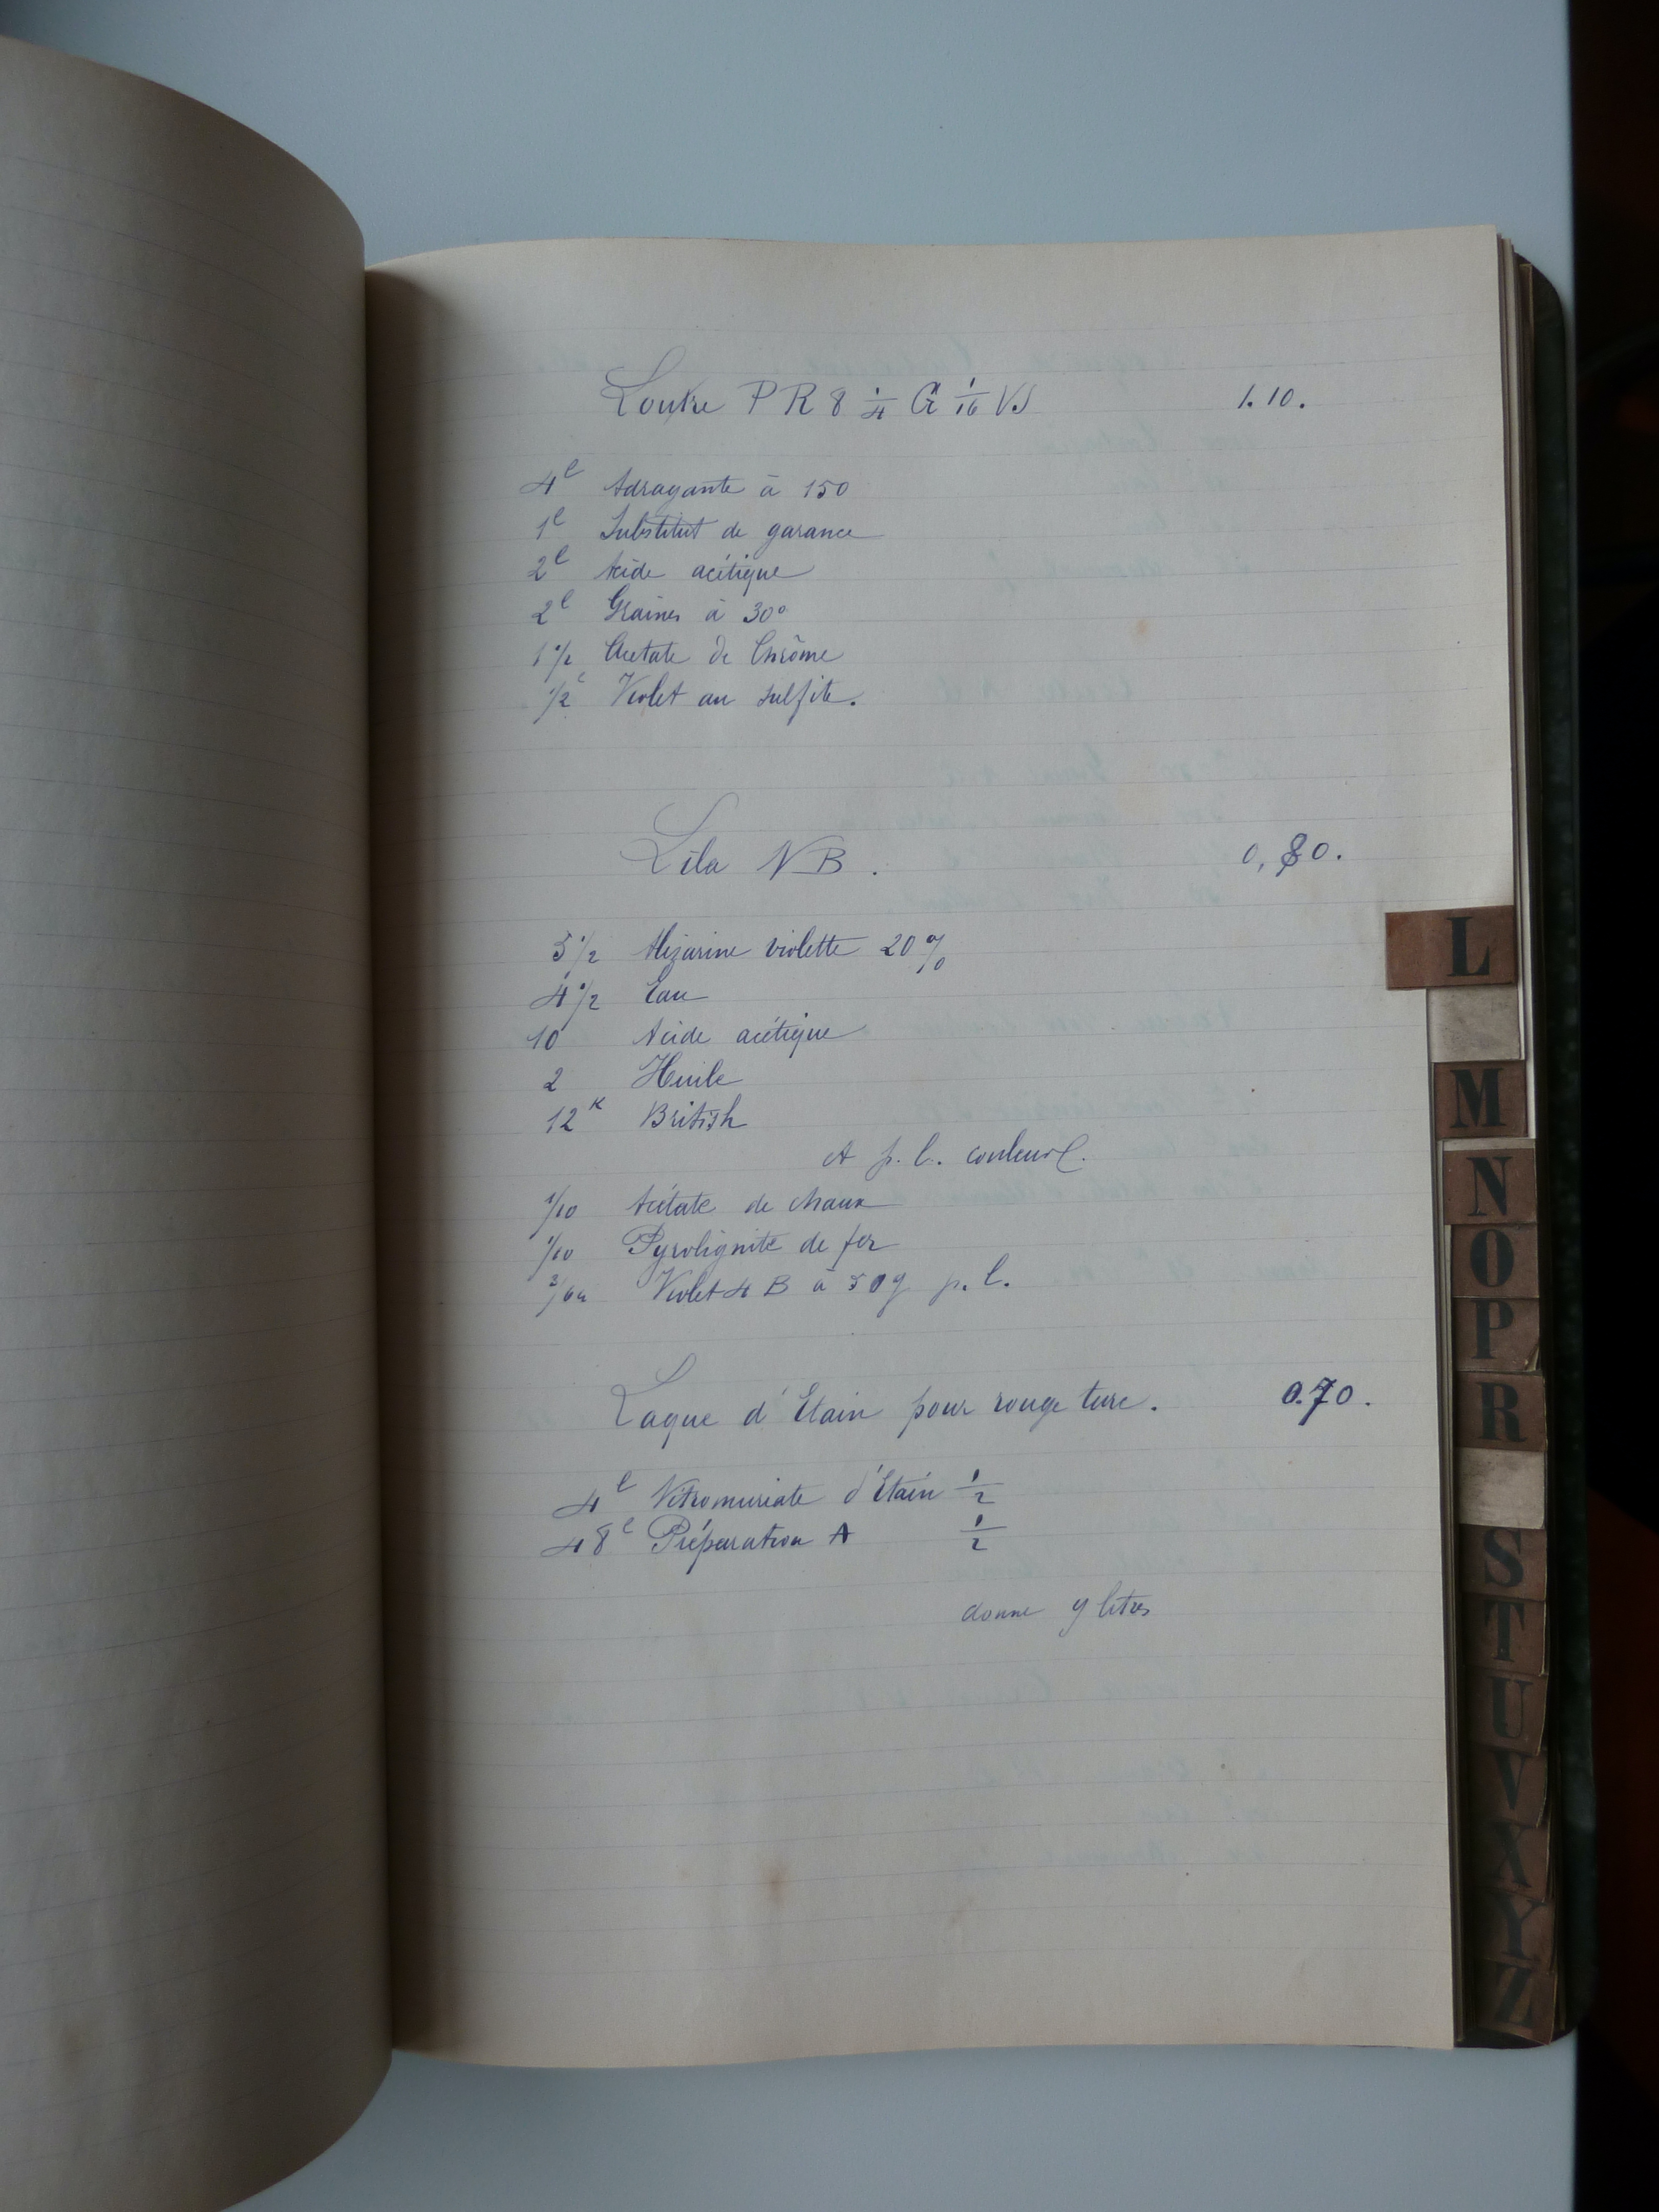 Loutre P R 8 1/4 G 1/16 VS 1.10.
4 l Adragante à 150
1 l Substitut de garance
2 l Acide acétique
2 l Graines à 30°
1 1/2 Acetate de Chrôme
1/2 l Violet au sulfite.
Lila NB. 0,80.
5 1/2 Alizarine violette 20%
4 1/2 Eau
10 Acide acétique
2 Huile
12 K British
et p. l. couleur
1/10 Acétate de chaux
1/10 Pyrolignite de fer
2/64 Violet 4 B à 50g p. l.
Laque d'Etain pour rouge turc. 0.70.
4 l Nitromuriate d'Etain 1/2
48 l Préparation A 1/2
donne 9 litres
L
M
N
O
P
R
S
T
U
V
X
Y
Z